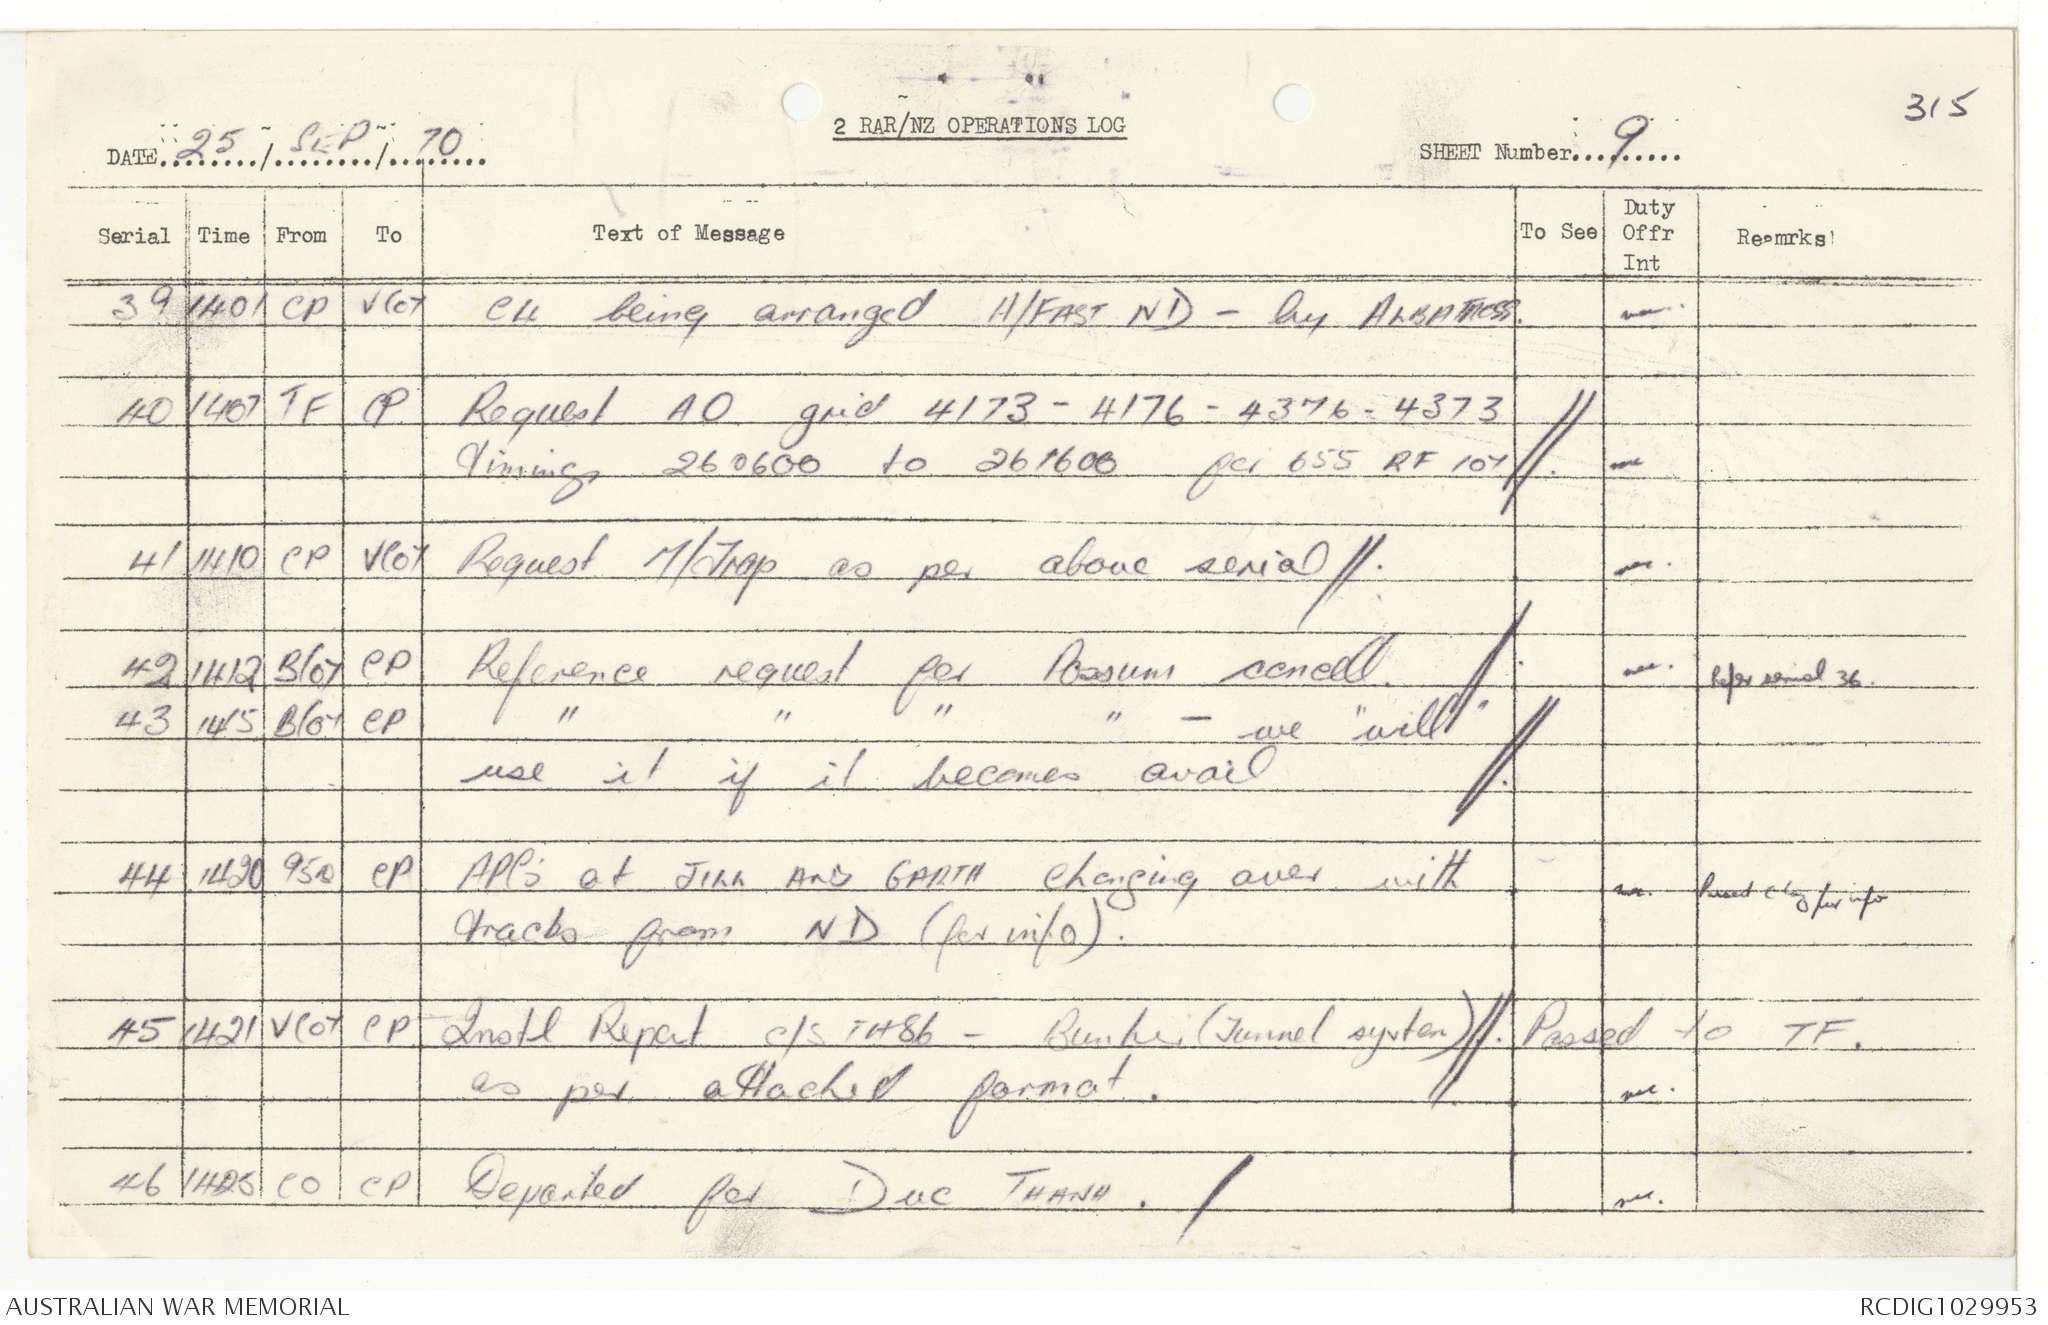 315
2 RAR/NZ OPERATIONS LOG
DATE 25 / SEP / 70
SHEET Number 9
Serial Time From To Text of Message To See Duty Offr Int Remrks
39 1401 CP V/07 C4 being arranged A/FAST ND - by ALBATROSS.
40 1407 TF CP Request AO grid 4173 - 4176 - 4376 - 4373
timings 260600 to 261600 for 655 RF 107 //.
41 1410 CP V/07 Request as per above serial //.
42 1412 B/07 CP Reference request for Possum cancell. // Refer serial 36.
43 1415 B/07 CP " " " " - we "will"
use it if it becomes avail //.
44 1420 950 CP APCs at JILL AND GARTH changing over with Passed for info
tracks from ND (for info).
45 1421 V/07 CP Instl Report c/s TH86 - Bunker (Tunnel system) //. Passed to TF.
as per attached format.
46 1425 CO CP Departed for Duc THANH. /
AUSTRALIAN WAR MEMORIAL
RCDIG1029953